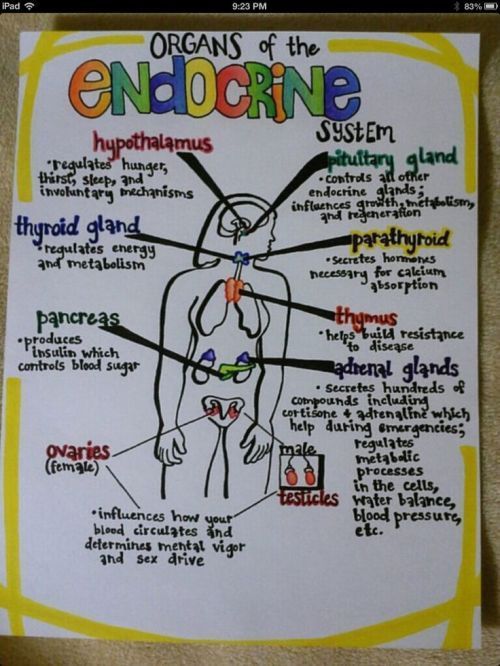 iPad
9:23 PM
83%
ORGANS of the
ENDOCRINE
SYSTEM
hypothalamus
•regulates hunger,
thirst, sleep, and
involuntary mechanisms
pituitary gland
•controls all other
endocrine glands;
influences growth, metabolism,
and regeneration
thyroid gland
•regulates energy
and metabolism
parathyroid
•secretes hormones
necessary for calcium
absorption
pancreas
•produces
insulin which
controls blood sugar
thymus
•helps build resistance
to disease
adrenal glands
•secretes hundreds of
compounds including
cortisone & adrenaline which
help during emergencies;
regulates
metabolic
processes
in the cells,
water balance,
blood pressure,
etc.
ovaries
(female)
male
testicles
•influences how your
blood circulates and
determines mental vigor
and sex drive